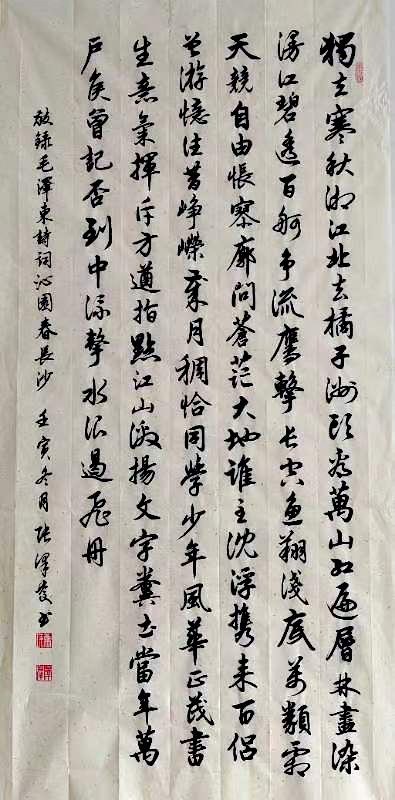 獨立寒秋湘江北去橘子洲頭看萬山红遍層林盡染
漫江碧透百舸争流鷹擊長空魚翔淺底萬類霜
天競自由悵寥廓問蒼茫大地誰主沈浮携来百侣
曾游憶往昔崢嶸歲月稠恰同學少年風華正茂書
生意氣揮斥方遒指點江山激揚文字糞土當年萬
户侯曾記否到中流擊水浪遏飛舟
敬錄毛澤東詩詞沁園春長沙 壬寅冬月张澤发书